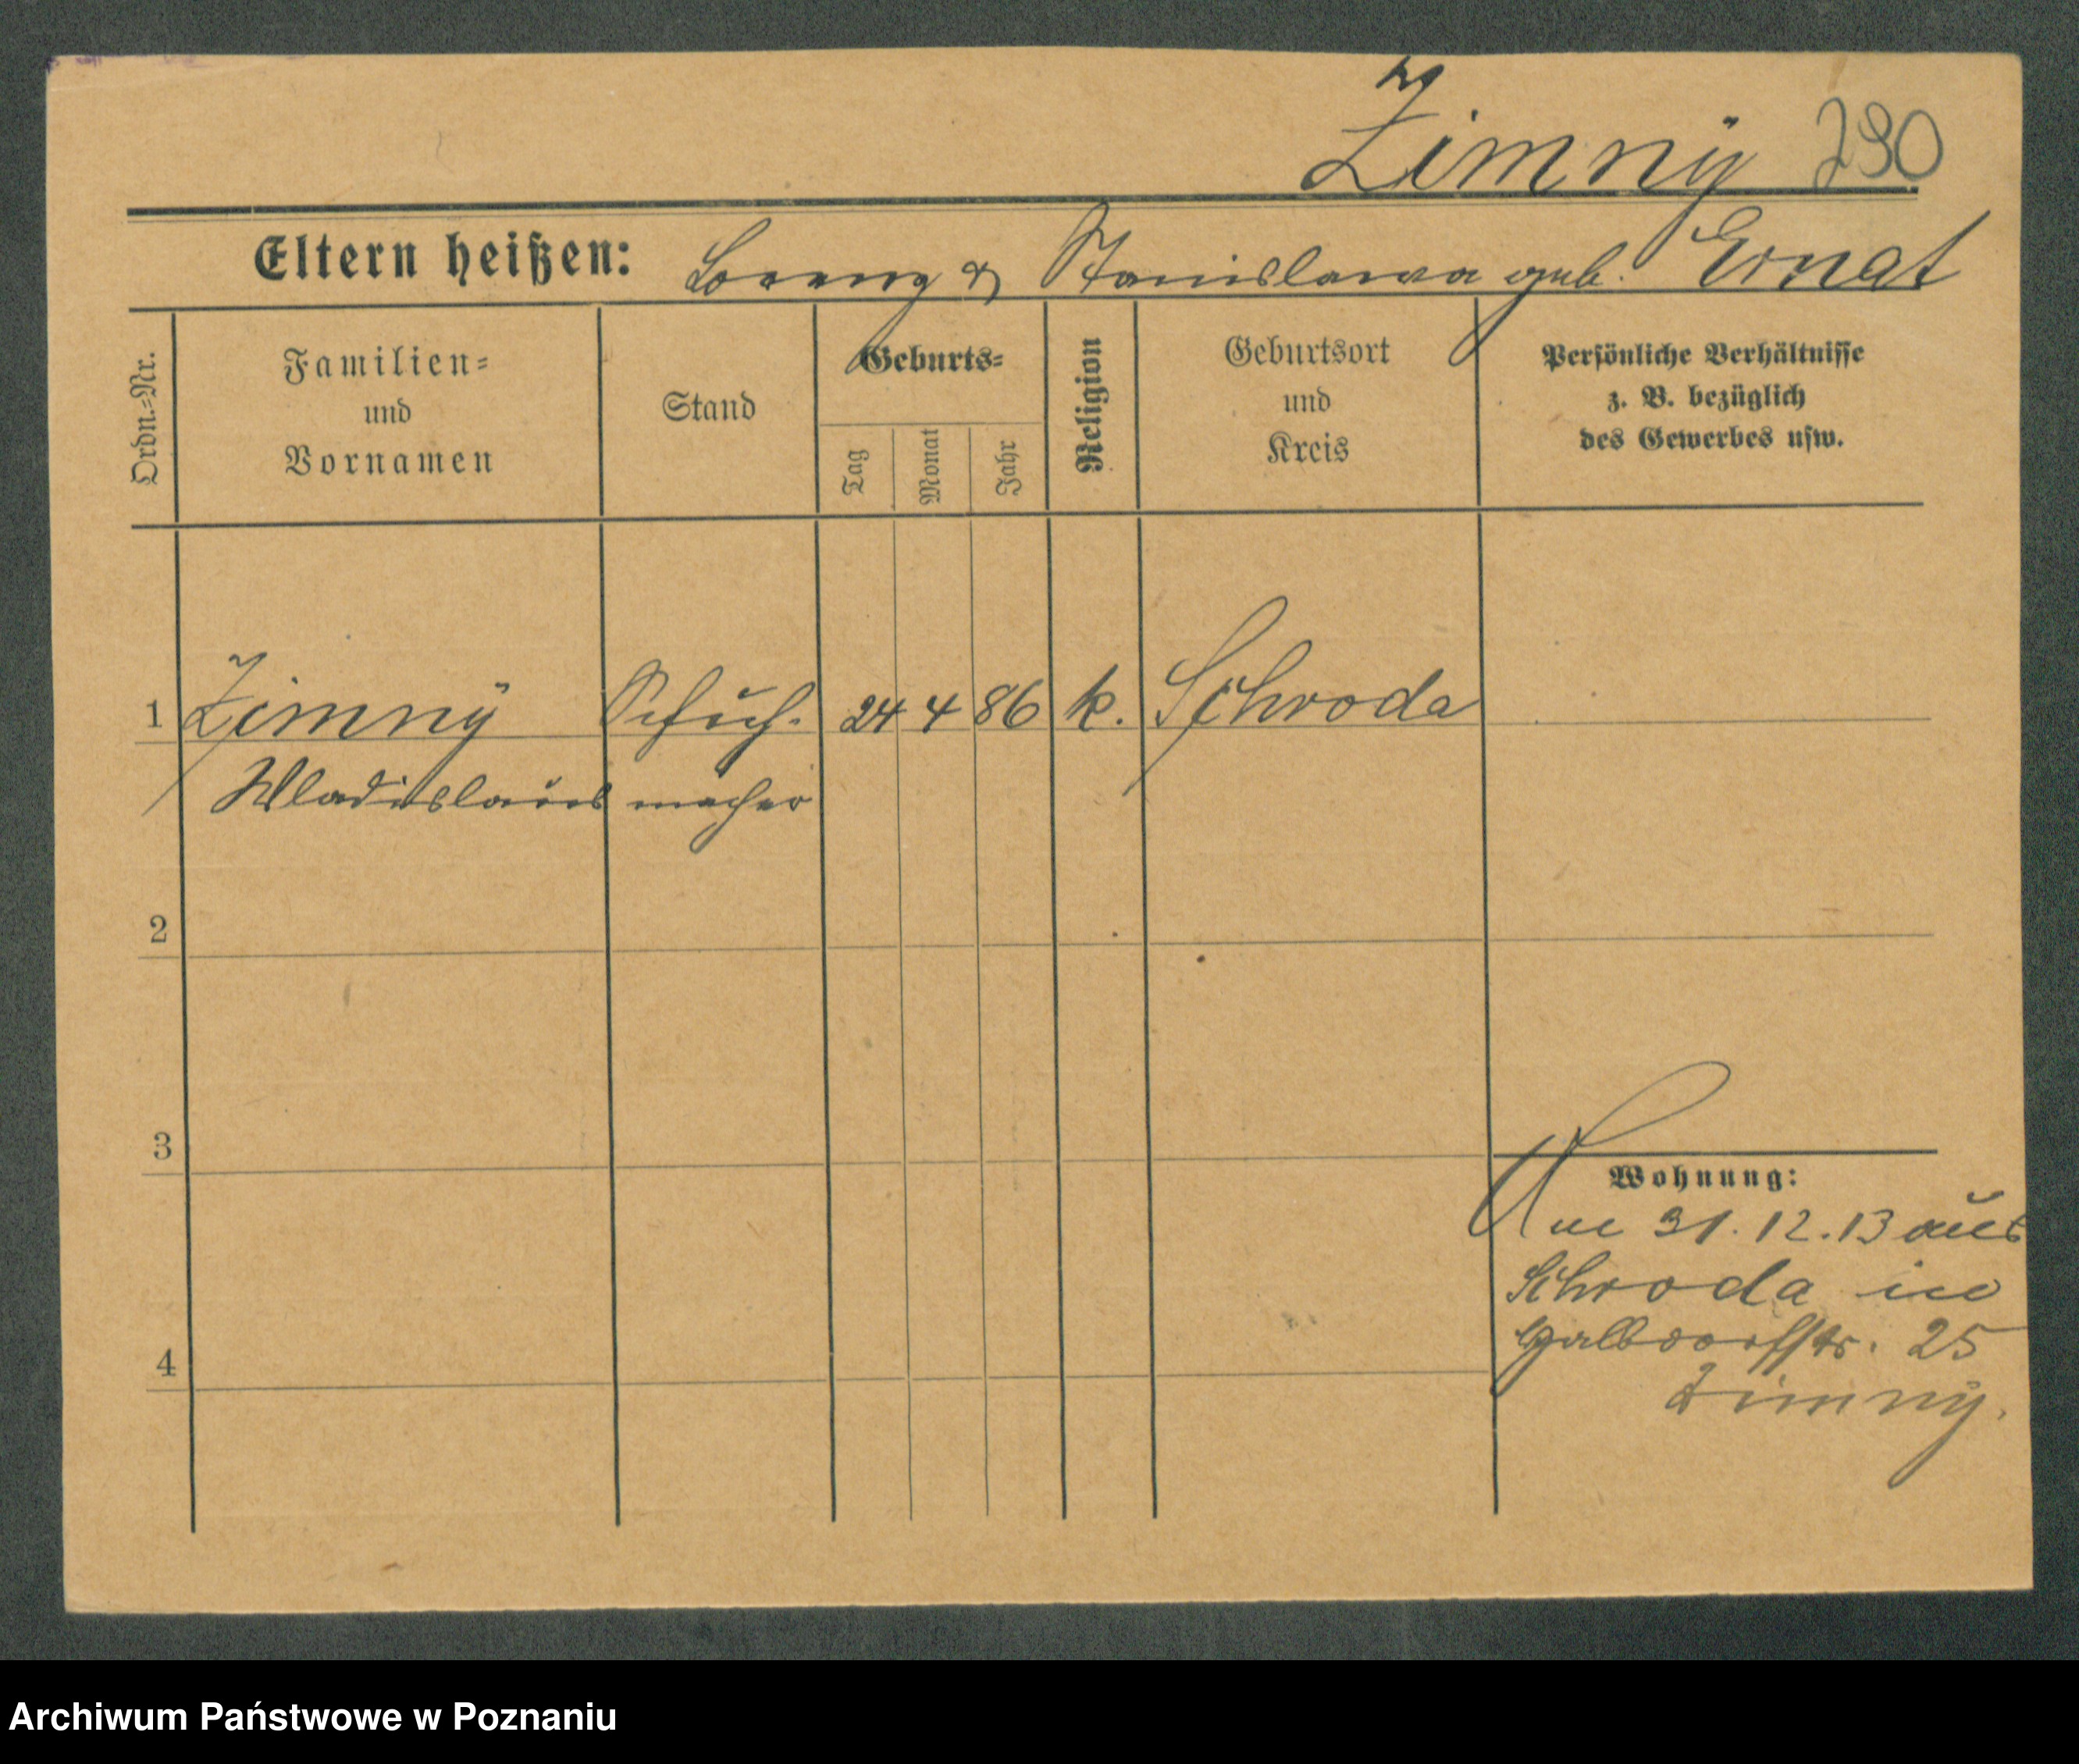 Zimny 290
Eltern heißen: Lorenz & Stanislawa geb. Ernat
Ordn.-Nr.
Familien=
und
Vornamen
Stand
Geburts=
Tag
Monat
Jahr
Religion
Geburtsort
und
Kreis
Persönliche Verhältnisse
z. B. bezüglich
des Gewerbes usw.
1 Zimny Schuh- 24 4 86 k. Schroda
Wladislaus macher
2
3
4
Wohnung:
Am 31.12.13 aus
Schroda in
25
Zimny.
Archiwum Państwowe w Poznaniu